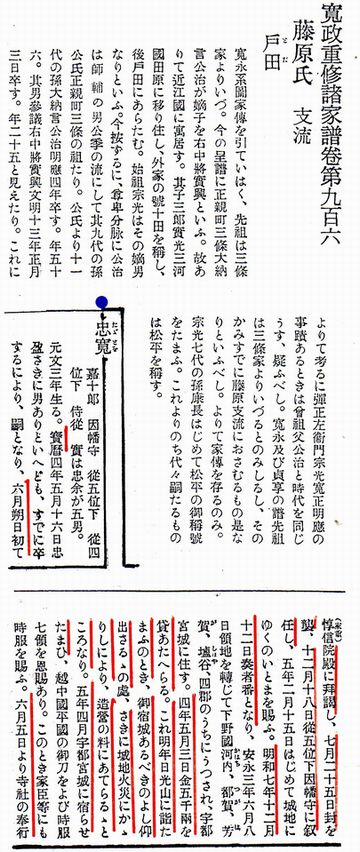 寛政重修諸家譜卷第九百六
藤原氏 支流
戸田
とだ
寛永系圖家傳を引ていはく、先祖は三條
家よりいづ。今の呈譜に正親町三條大納
言公治が嫡子を右中將實興といふ。故あ
りて近江國に寓居す。其子三郎實光三河
國田原に移り住し、外家の號十田を稱し、
後戸田にあらたむ。始祖宗光はその嫡男
なりといふ。今按ずるに、尊卑分脈に公治
は師輔の男公季の流にして其九代の孫
公氏正親町三條の祖たり。公氏より十一
代の孫大納言公治明應四年卒す。年五十
六。其男參議右中將實興文明十三年正月
三日卒す。年二十五と見えたり。これに
よりて考るに彈正左衞門宗光寛正明應の
事蹟あるときは曾祖父公治と時代を同じ
うす、疑ふべし。寛永及び貞享の譜先祖
は三條家よりいづるとのみしるし、その
かみすでに藤原支流におさむるもの是な
りといふべし。よりて家傳を存るのみ。
宗光七代の孫康長はじめて松平の御稱號
をたまふ。これよりのち代々嗣たるもの
は松平を稱す。
忠寛
嘉十郎 因幡守 從五位下 從四
位下 侍從 實は忠余が五男。
元文三年生る。寶暦四年五月十六日忠
盈さきに男ありといへども、すでに卒
するにより、嗣となり、六月朔日初て
惇信院殿に拜謁し、七月二十五日封を
(家重)
襲、十二月十八日從五位下因幡守に叙
任し、五年二月十五日はじめて城地に
ゆくのいとまを賜ふ。明和七年十二月
十二日奏者番となり、安永三年六月八
日領地を轉じて下野國河内、都賀、芳
賀、鹽谷、四郡のうちにうつされ、宇都
宮城に住す。四年五月三日金五千兩を
貸あたへらる。これ明年日光山に詣た
まふのとき、御宿城あるべきのよし仰
出さるゝの處、さきに城地火災にかゝ
りしにより、造營の料にあてらるゝと
ころなり。五年四月宇都宮城に宿らせ
たまひ、越中國平國の御刀をよび時服
七領を恩賜あり。このとき家臣等にも
時服を賜ふ。六月五日より寺社の奉行